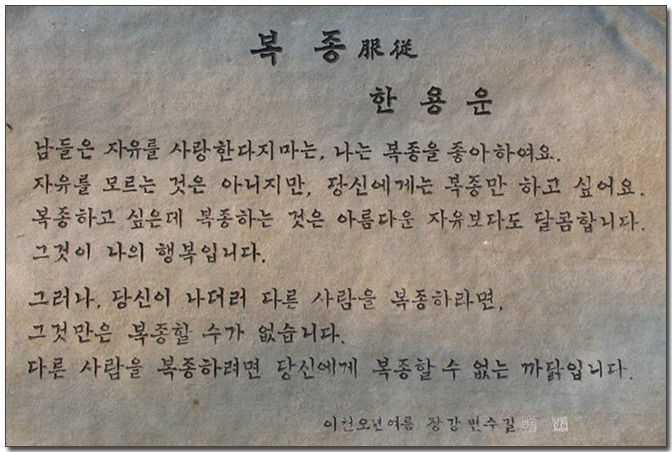 복종 服從
한용운
남들은 자유를 사랑한다지마는, 나는 복종을 좋아하여요.
자유를 모르는 것은 아니지만, 당신에게는 복종만 하고 싶어요.
복종하고 싶은데 복종하는 것은 아름다운 자유보다도 달콤합니다.
그것이 나의 행복입니다.
그러나, 당신이 나더러 다른 사람을 복종하라면,
그것만은 복종할 수가 없습니다.
다른 사람을 복종하려면 당신에게 복종할 수 없는 까닭입니다.
이천오년여름 장강변수길